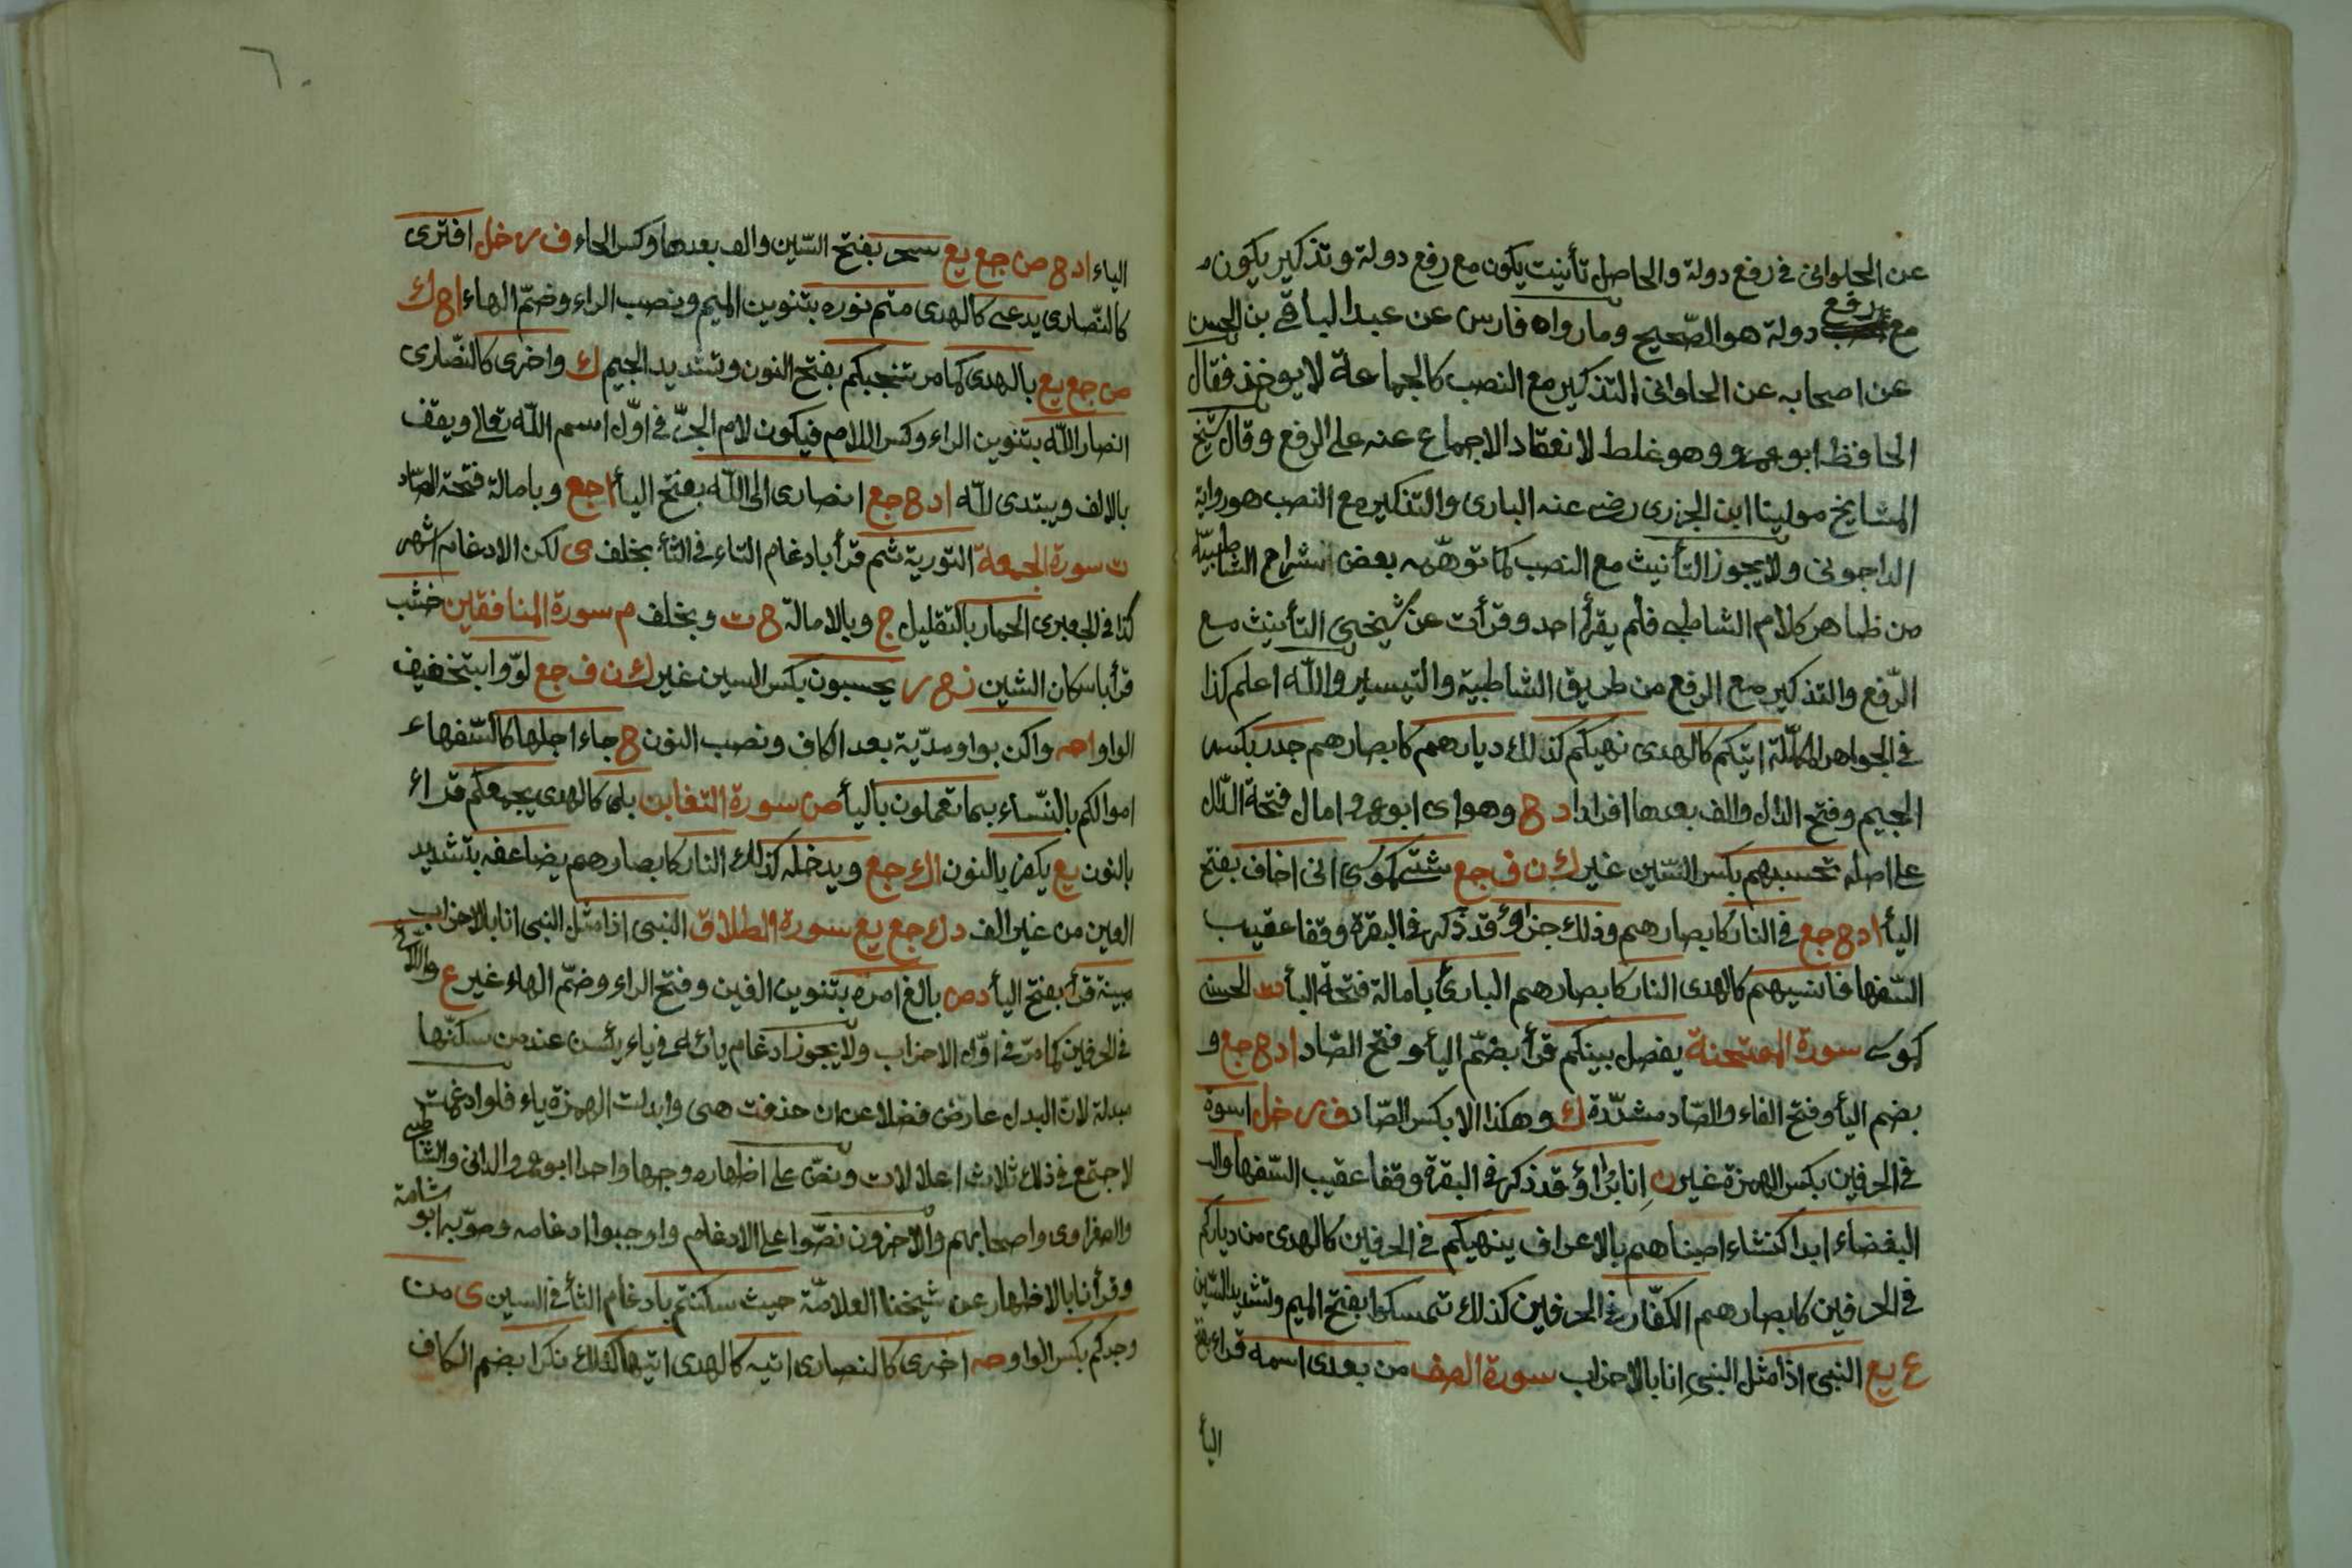 عن الحلوانى فى رفع دولة والحاصل تأنيت يكون مع رفع دولة وتذكير يكون
مع رفع دولة هو الصّحيح وما رواه فارس عن عبد الباقى بن الحسن
عن اصحابه عن الحلوانى التذكير مع النصب كالجماعة لا يوخذ فقال
الحافظ ابو عمرو وهو غلط لانعقاد الاجماع عنه على الرفع وقال شيخ
المشايخ مولينا ابن الجزرى رضى عنه البارى والتذكير مع النصب هو رواية
الداجونى ولا يجوز التأنيث مع النصب كما توهّمه بعض شراح الشاطبيّة
من ظاهر كلام الشاطبى فلم يقرأ احد وقرأت عن شيخى التأنيث مع
الرّفع والتذكير مع الرفع من طريق الشاطبية والتيسير واللّه اعلم كذا
فى الجواهر المكلّلة اتيكم كالهدى نهيكم كذلك ديارهم كابصارهم جدر بكسر
الجيم وفتح الدال والف بعدها افرادا د ح وهو اى ابو عمرو امال فتحة الدّال
على اصله تحسبهم بكسر السّين غير ك ن ف جع شتى كموسى انى اخاف بفتح
اليأ ا د ح جع فى النار كابصارهم وذلك جزاؤ قد ذكر فى البقرة وقفا عقيب
السّفها فانسيهم كالهدى النار كابصارهم البارئ بامالة فتحة البأ ت الحسنى
كموسى سورة الممتحنة يفصل بينكم قرأ بضمّ اليأ وفتح الصّاد ا د ح جع و
بضم اليأ وفتح الفاء والصّاد مشدّدة ك وهكذا الا بكسر الصّاد ف ر خل اسوة
فى الحرفين بكسر الهمزة غير ن انا برآؤ قد ذكر فى البقرة وقفا عقيب السّفها وال
البغضاء ابدا كنشاء اصبناهم بالاعراف ينهيكم فى الحرفين كالهدى من دياركم
فى الحرفين كابصارهم الكفّار فى الحرفين كذلك تمسكوا بفتح الميم وتشديد السّين
ع يع النبى اذا مثل النبى انا بالاحزاب سورة الصف من بعدى اسمه قراء بفتح
اليأ
الياء ا د ح ص جع يع سحر بفتح السّين والف بعدها وكسر الحاء ف ر خل افترى
كالنّصارى يدعى كالهدى متم نوره بتنوين الميم وبنصب الراء وضمّ الهاء ا ح ك
ص جع يع بالهدى كما مر تنجيكم بفتح النون وتشديد الجيم ك واخرى كالنّصارى
انصار اللّه بتنوين الراء وكسر اللام فيكون لام الجرّ فى اوّل اسم اللّه تعالى ويقف
بالالف ويبتدى للّه ا د ح جع انصارى الى اللّه بفتح اليأ ا جع وبامالة فتحة الصّاد
ت سورة الجمعة التورية ثم قرأ بادغام التاء فى الثأ بخلف ى لكن الادغام اشهر
كذا فى الجعبرى الحمار بالتقليل ج وبالامالة ح ت وبخلف م سورة المنافقين خشب
قرأ باسكان الشين ز ح ر يحسبون بكسر السين غير ك ن ف جع لوّوا بتخفيف
الواو ا ص واكن بواو مدّية بعد الكاف ونصب النون ح جاء اجلها كالسّفهاء
اموالكم بالنّساء بما تعملون باليأ ص سورة التغابن بلى كالهدى يجمعكم قراء
بالنون يع يكفر بالنون ا ك جع ويدخله كذلك النار كابصارهم يضاعفه بتشديد
العين من غير الف د ك جع يع سورة الطلاق النبى اذا مثل النبى انا بالاحزاب
مبينة قرأ بفتح اليأ د ص بالغ امره بتنوين الغين وفتح الراء وضمّ الهاء غير ع واللائى
فى الحرفين كما مرّ فى اوّل الاحزاب ولا يجوز ادغام يائه فى ياء يئسن عند من سكنّها
مبدلة لان البدل عارض فضلا عن ان حذفت هى وابدلت الهمزة ياء فلو ادغمت
لاجتمع فى ذلك ثلاث اعلالات ونصّ على اظهاره وجها واحدا ابو عمرو الدانى والشاطبى
والصفراوى واصحابهم والآخرون نصّوا على الادغام واوجبوا ادغامه وصوّبه ابو شامة
وقرأنا بالاظهار عن شيخنا العلامّة حيث سكنتم بادغام الثأ فى السين ى من
وجدكم بكسر الواو ص اخرى كالنصارى اتيه كالهدى اتيها كذلك نكرا بضم الكاف